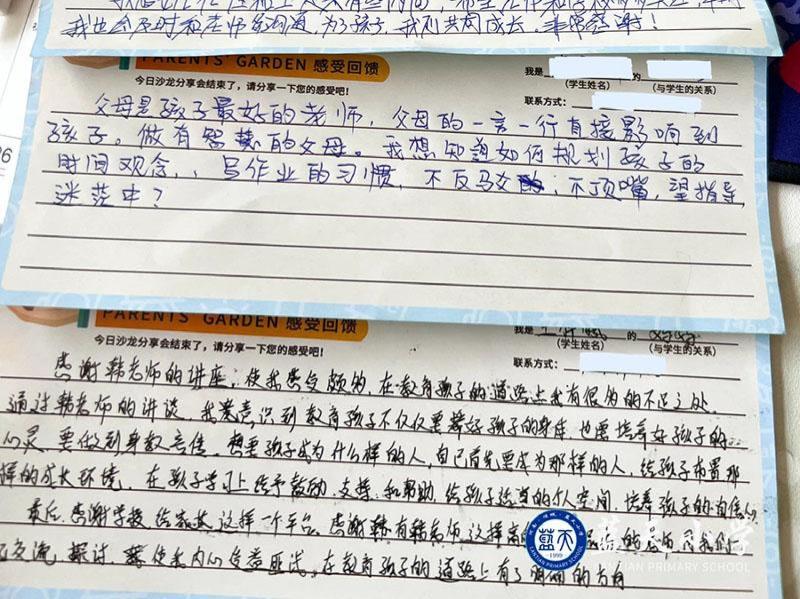 我也会及时和老师多沟通,为了孩子,我们共同成长,非常感谢!
PARENTS' GARDEN 感受回馈
今日沙龙分享会结束了,请分享一下您的感受吧!
我是 的
(学生姓名) (与学生的关系)
联系方式:
父母是孩子最好的老师,父母的一言一行直接影响到
孩子。做有智慧的父母。我想知道如何规划孩子的
时间观念,、写作业的习惯,不反驳,不顶嘴,望指导,
迷茫中?
26
PARENTS' GARDEN 感受回馈
今日沙龙分享会结束了,请分享一下您的感受吧!
我是 的 妈妈
(学生姓名) (与学生的关系)
联系方式:
感谢韩老师的讲座,使我感受颇多,在教育孩子的道路上我有很多的不足之处
通过韩老师的讲谈 我意识到教育孩子不仅仅要养好孩子的身体 也要培养好孩子的
心灵 要做到身教言传 想要孩子成为什么样的人,自己首先要成为那样的人,给孩子布置那
样的成长环境 在孩子学习上给予鼓励 支持 和帮助 给孩子适当的个人空间,培养孩子的自信心
最后 感谢学校给家长这样一个平台 感谢 有韩老师这样高 的老师 和我们
交流 探讨 使我内心 在教育孩子的道路上有了明确的方向
蓝天
1999
蓝天小学
LANTIAN PRIMARY SCHOOL